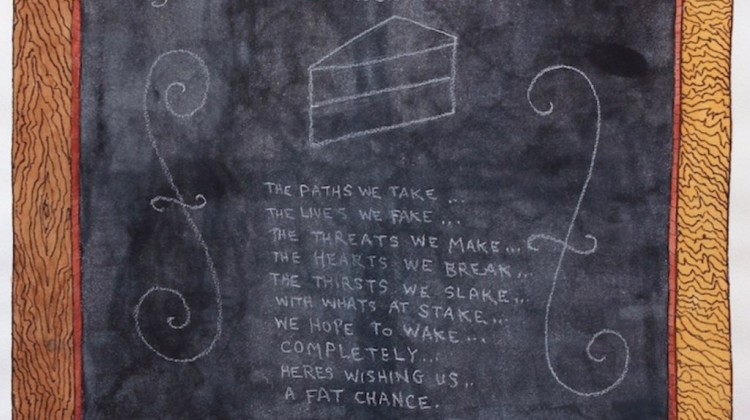 THE PATHS WE TAKE ...
THE LIVES WE FAKE ...
THE THREATS WE MAKE...
THE HEARTS WE BREAK...
THE THIRSTS WE SLAKE...
WITH WHATS AT STAKE...
WE HOPE TO WAKE...
COMPLETELY...
HERES WISHING US..
A FAT CHANCE.